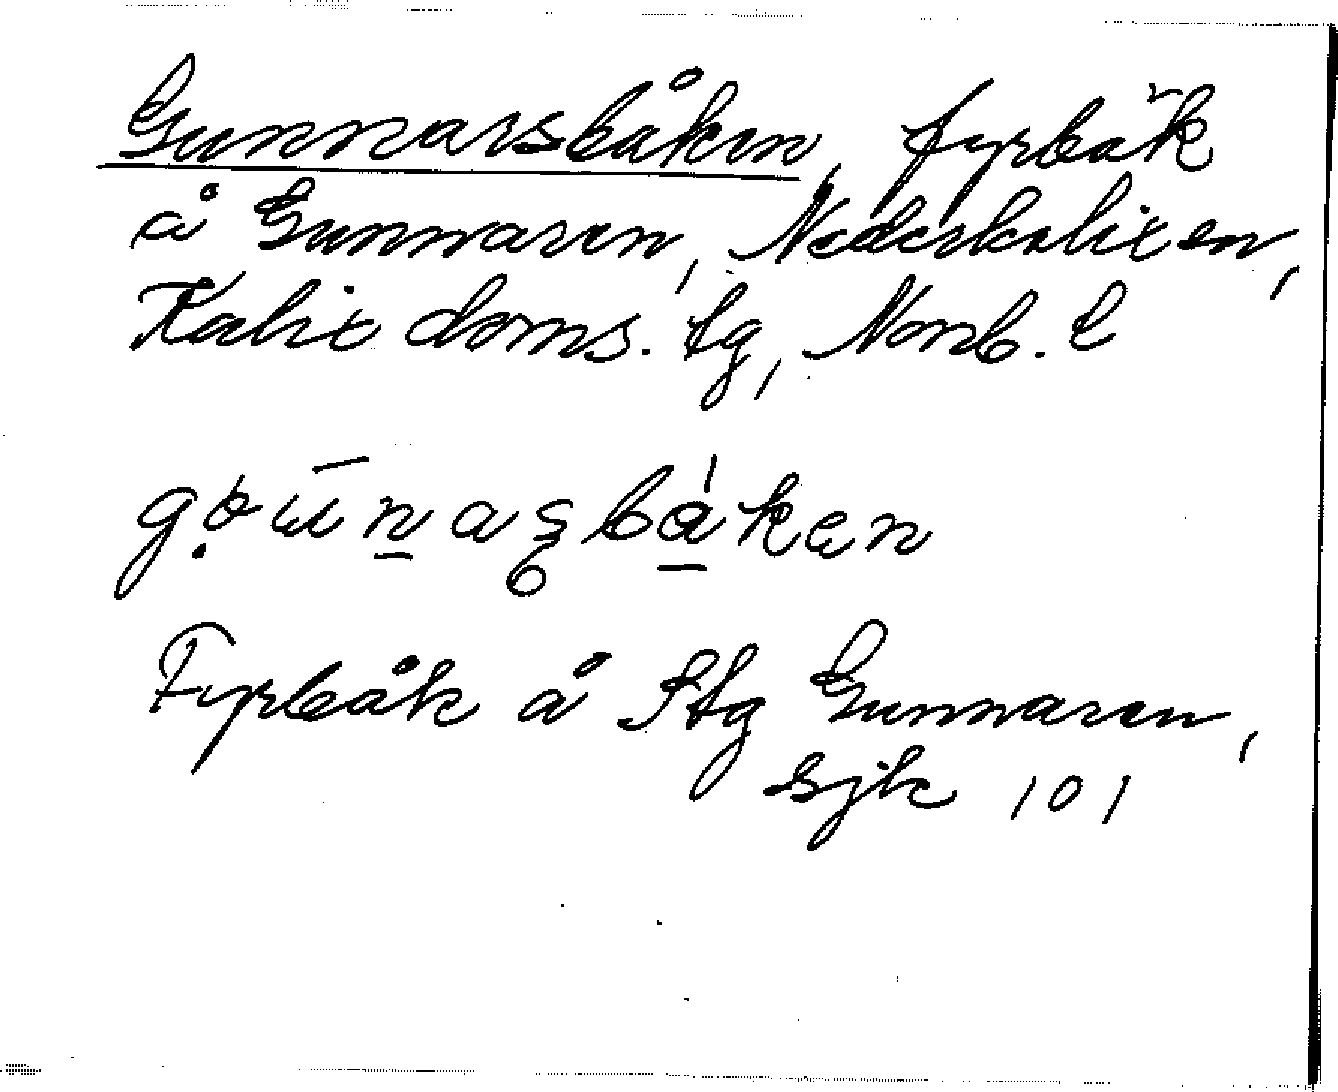 Gunnarsbåken, fyrbåk
å Gunnaren, Nederkalix sn,
Kalix doms. tg, Norrb. l
Fyrbåk å Stg Gunnaren,
sjk 101